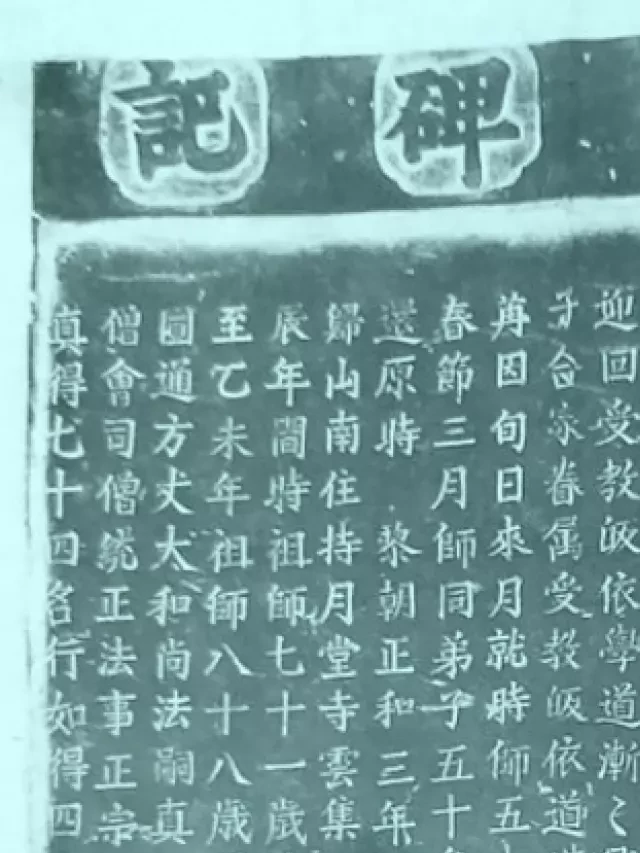 碑記
迎回受教皈依學道漸々
子合家眷属受教皈依道
苒因旬日來月就時師五
春節三月師同弟子五十
還原時 黎朝正和三年
歸山南住持月堂寺雲集
辰年間時祖師七十一歲
至乙未年祖師八十八歲
圓通方丈大和尚法嗣真
僧會司僧統正法事正宗
真得七十四名行如得四